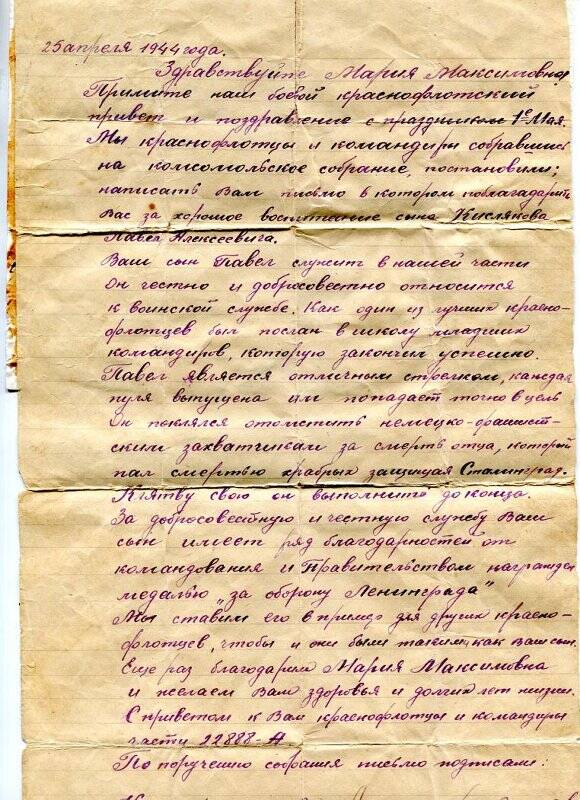 25 апреля 1944 года.
Здравствуйте Мария Максимовна!
Примите наш боевой краснофлотский
привет и поздравление с праздником 1е Мая.
Мы краснофлотцы и командиры собравшись
на комсомольское собрание, постановили;
написать Вам письмо в котором поблагодарить
Вас за хорошое воспитание сына Кислякова
Павел Алексеевича.
Ваш сын Павел служит в нашей части
Он честно и добросовестно относится
к воинской службе. Как один из лучших красно-
флотцев был послан в школу младших
командиров, которую закончил успешно.
Павел является отличным стрелком, каждая
пуля выпущена им попадает точно в цель
Он поклялся отомстить немецко-фашист-
ским захватчикам за смерть отца, которой
пал смертью храбрых защищая Сталинград.
Клятву свою он выполните до конца.
За добросовестную и честную службу Ваш
сын имеет ряд благодарностей от
командования и Правительством награжден
медалью „за оборону Ленинграда"
Мы ставим его в пример для других красно-
флотцев, чтобы и они были такими, как Ваш сын.
Еще раз благодарим Мария Максимовна
и желаем Вам здоровья и долгих лет жизни.
С приветом к Вам краснофлотцы и командиры
части 22888-А
По поручению собрания письмо подписали: